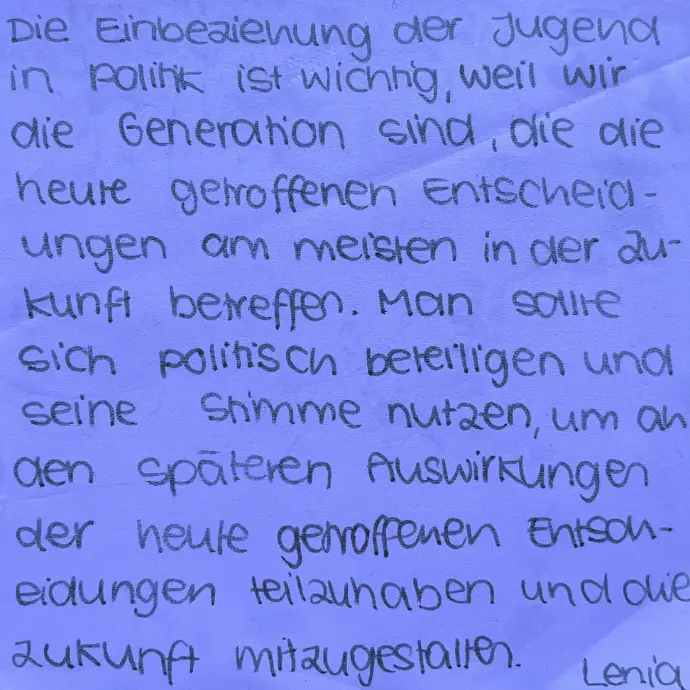 Die Einbeziehung der Jugend
in Politik ist wichtig, weil wir
die Generation sind, die die
heute getroffenen Entscheid-
ungen am meisten in der Zu-
kunft betreffen. Man sollte
sich politisch beteiligen und
seine Stimme nutzen, um an
den späteren Auswirkungen
der heute getroffenen Entsch-
eidungen teilzuhaben und die
Zukunft mitzugestalten.
Lenia